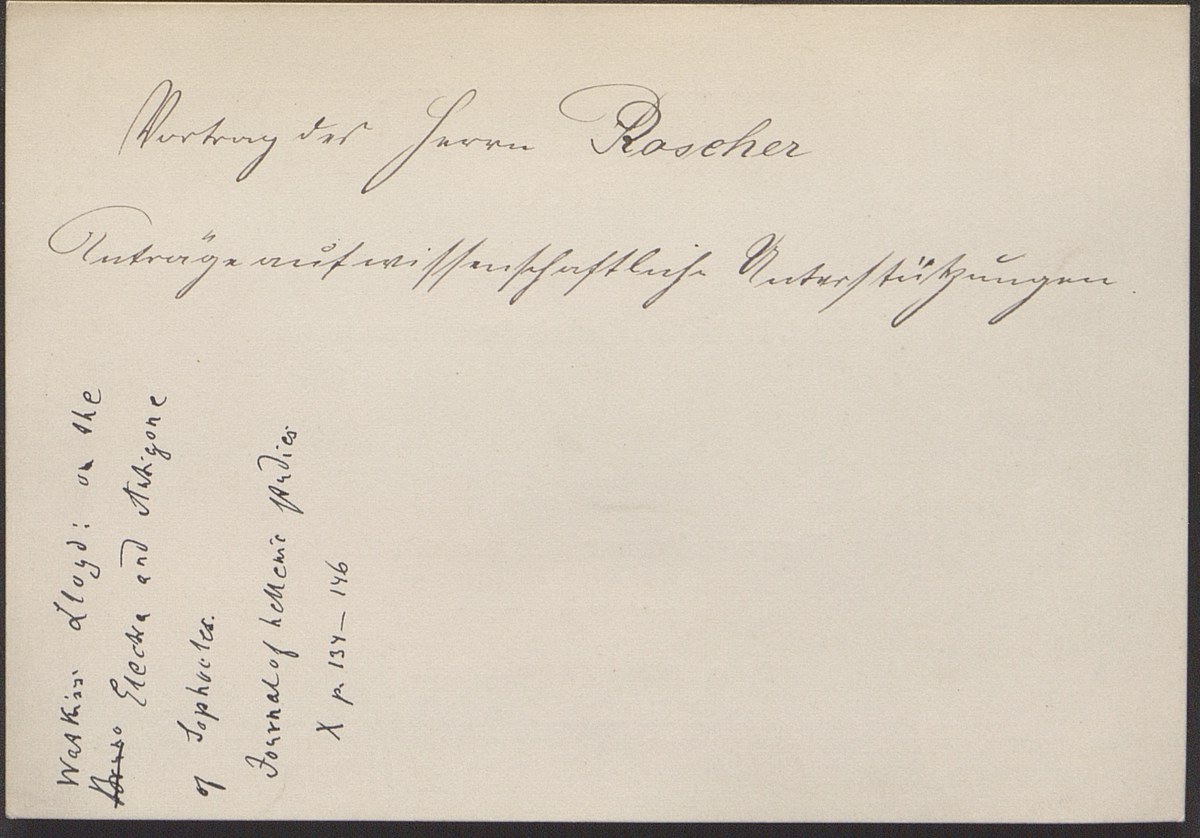 Vortrag des Herrn Roscher
Anträge auf wissenschaftliche Unterstützungen.
Watkiss Lloyd: on the
Electra and Antigone
of Sophocles.
Journal of hellenic studies
X p. 134–146